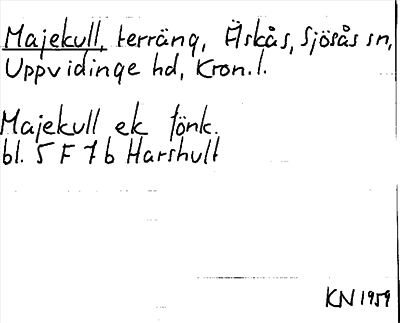 Majekull, terräng, Äskås, Sjösås sn,
Uppvidinge hd, Kron.l.
Majekull ek fönk.
bl. 5 F 7 b Harshult
KN 1959